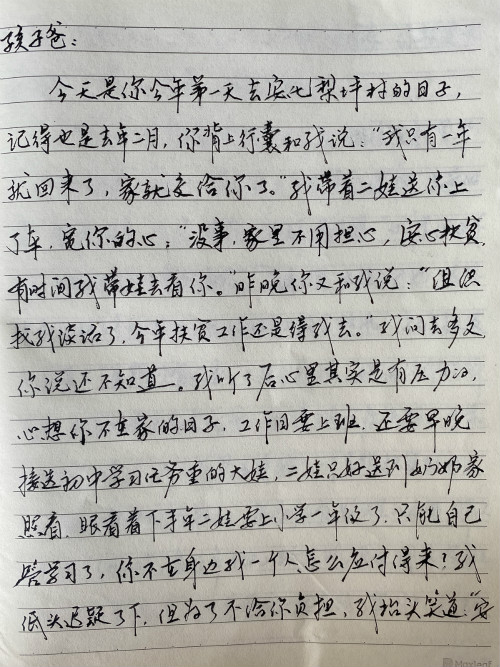 孩子爸：
今天是你今年第一天去安七梨坪村的日子，
记得也是去年二月，你背上行囊和我说：“我只有一年
就回来了，家就交给你了。”我带着二娃送你上
了车，宽你的心：“没事，家里不用担心，安心扶贫，
有时间我带娃去看你。”昨晚你又和我说：“组织
找我谈话了，今年扶贫工作还是得我去。”我问去多久，
你说还不知道。我听了后心里其实是有压力的，
心想你不在家的日子，工作日要上班，还要早晚
接送初中学习任务重的大娃，二娃只好送到奶奶家
照看，眼看着下半年二娃要上小学一年级了，只能自己
管学习了，你不在身边我一个人怎么应付得来？我
低头迟疑了下，但为了不给你负担，我抬头笑道：“安